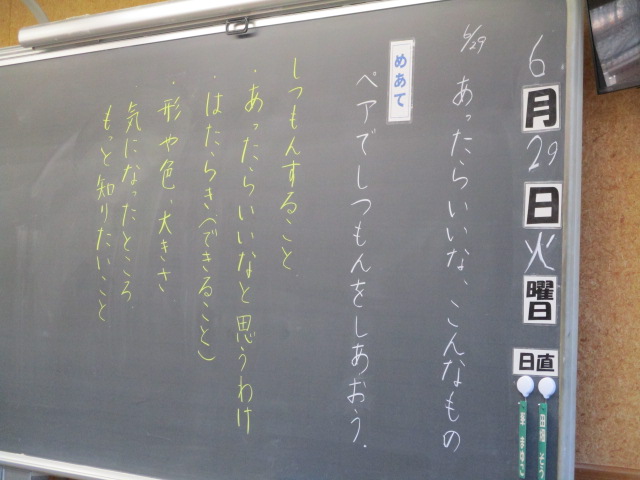 6月29日火曜日
日直
6/29
あったらいいな、こんなもの
めあて
ペアでしつもんをしあおう.
しつもんすること
・あったらいいなと思うわけ
・はたらき(できること)
・形や色、大きさ
・気になったところ
もっと知りたいこと